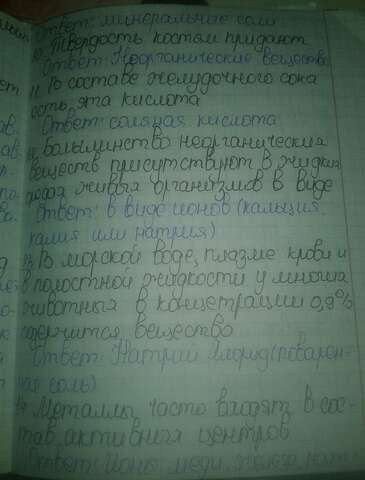 Ответ: минеральные соли
10. Твердость костям придают
Ответ: Неорганические вещества
11. В составе желудочного сока
есть эта кислота
Ответ: соляная кислота
12. Большинство неорганических
веществ присутствуют в жидких
средах живых организмов в виде
Ответ: в виде ионов (кальция
калия или натрия)
13. В морской воде, плазме крови и
в полостной жидкости у многих
животных в концетрации 0,9%
содержится вещество
Ответ: Натрий хлорид (поварен-
ная соль)
14. Металлы часто входят в сос-
тав активных центров
Ответ: Ионы меди, железа,